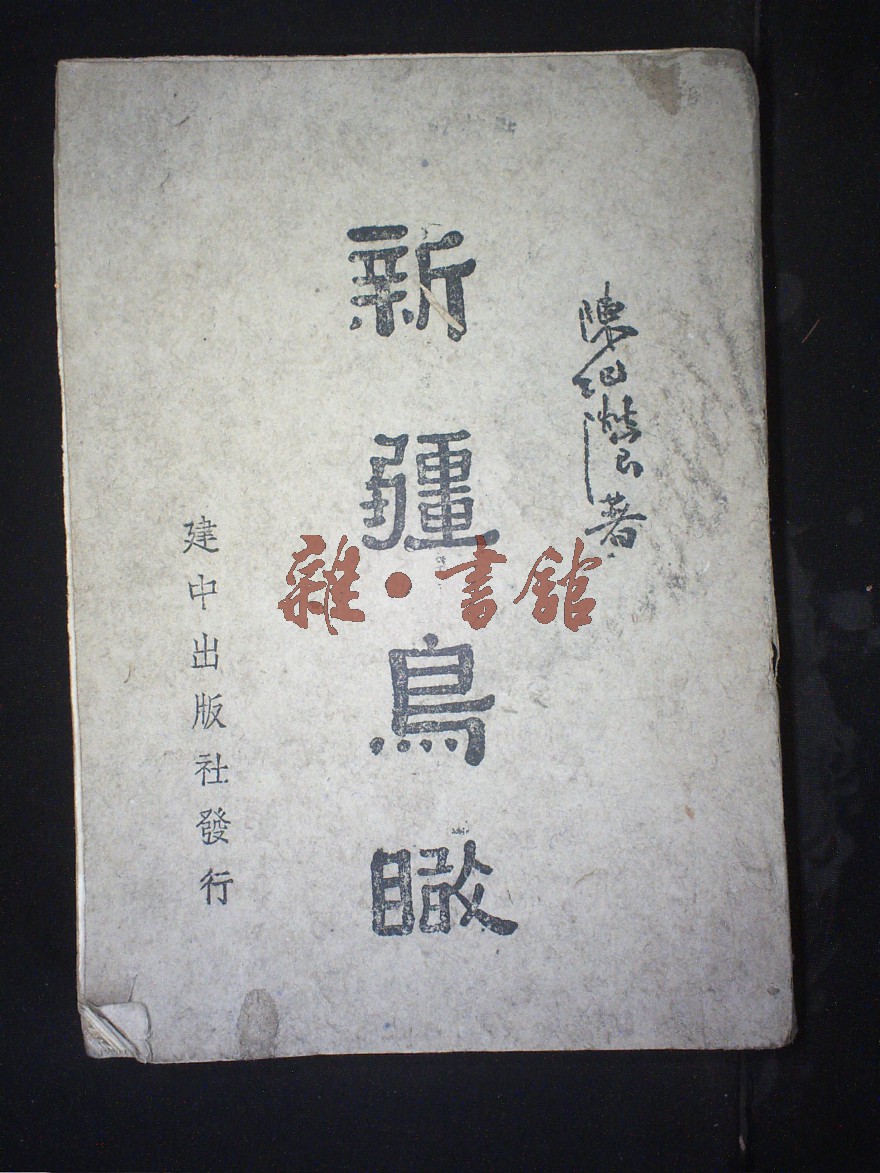 陳紀瀅著
新疆鳥瞰
建中出版社發行
雜·書館